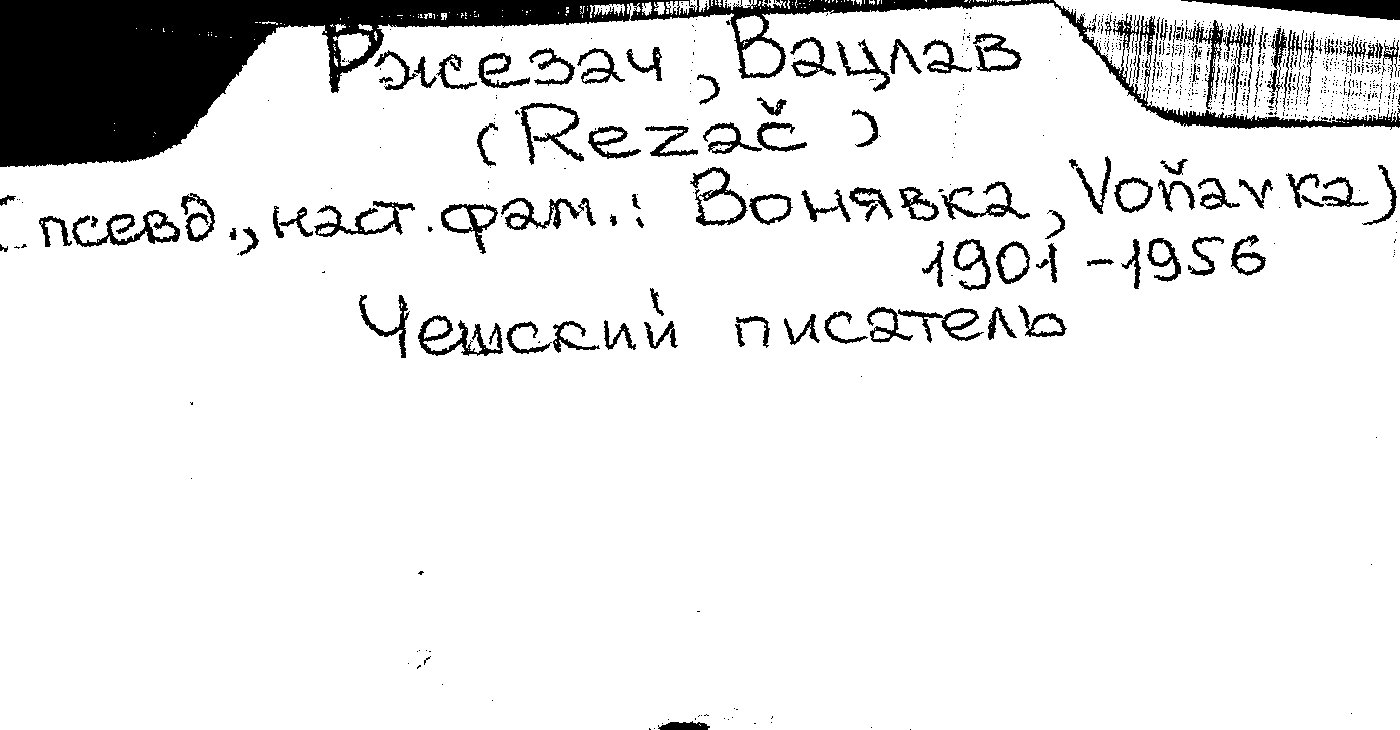 Ржезач, Вацлав
(Rezač)
(псевд., наст. фам.: Вонявка, Voňavka)
1901-1956
Чешский писатель